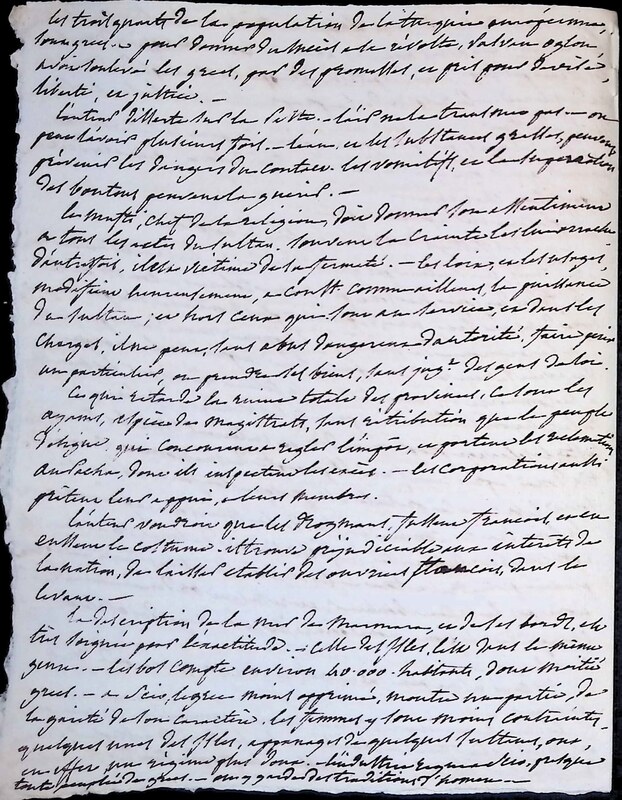 les trois quarts de la population de la turquie européenne,
sont grecs. - pour donner du succès à la révolte, Paswan Oglou
avoit soulevé les grecs, par des promesses, et pris pour devise,
liberté, et justice. -
L'auteur disserte sur la Peste. - l'air ne la transmet pas. - on
peut l'avoir plusieurs fois. - l'eau, et les substances grasses, peuvent
prévenir les dangers du contact. les vomitifs, et la suppuration
des boutons peuvent la guérir. -
Le mufti, chef de la religion, doit donner son assentiment
à tous les actes du sultan. souvent la crainte les lui arrache
d'autrefois, il est victime de sa fermeté. - les loix, et les usages,
modifient heureusement, à Const. comme ailleurs, la puissance
du sultan ; et hors ceux qui sont à son service, et dans les
charges, il ne peut, sans abus dangereux d'autorité, faire périr
un particulier, ou prendre ses biens, sans jugt. des gens de loi.
Ce qui retarde la ruine totale des provinces, ce sont les
ayams, espèce de magistrats, sans rétribution que le peuple
désigne. qui concourent à régler l'impôt, et portent les réclamations
au Pacha, dont ils inspectent les excès. - les corporations aussi
prêtent leur appui, à leurs membres.
L'auteur voudroit que les drogmans, fussent françois, et en
eussent le costume. il trouve préjudiciable aux interêts de
la nation, de laisser etablir des ouvriers françois, dans le
levant. -
La description de la mer de Marmara, et de ses bords, est
très soignée pour l'exactitude. - celle des Isles, l'est dans le même
genre. - lesbos compte environ 40.000 habitants, dont moitié
grecs. - à Scio, le grec moins opprimé, montre une partie, de
la gaieté de son caractère. les femmes y sont moins contraintes.
quelques unes des Isles, appanages de quelques sultanes, ont,
en effet un régime plus doux. - l'industrie règne à Scio, presque
toute peuplée de grecs. - on y garde des traditions d'homere. -